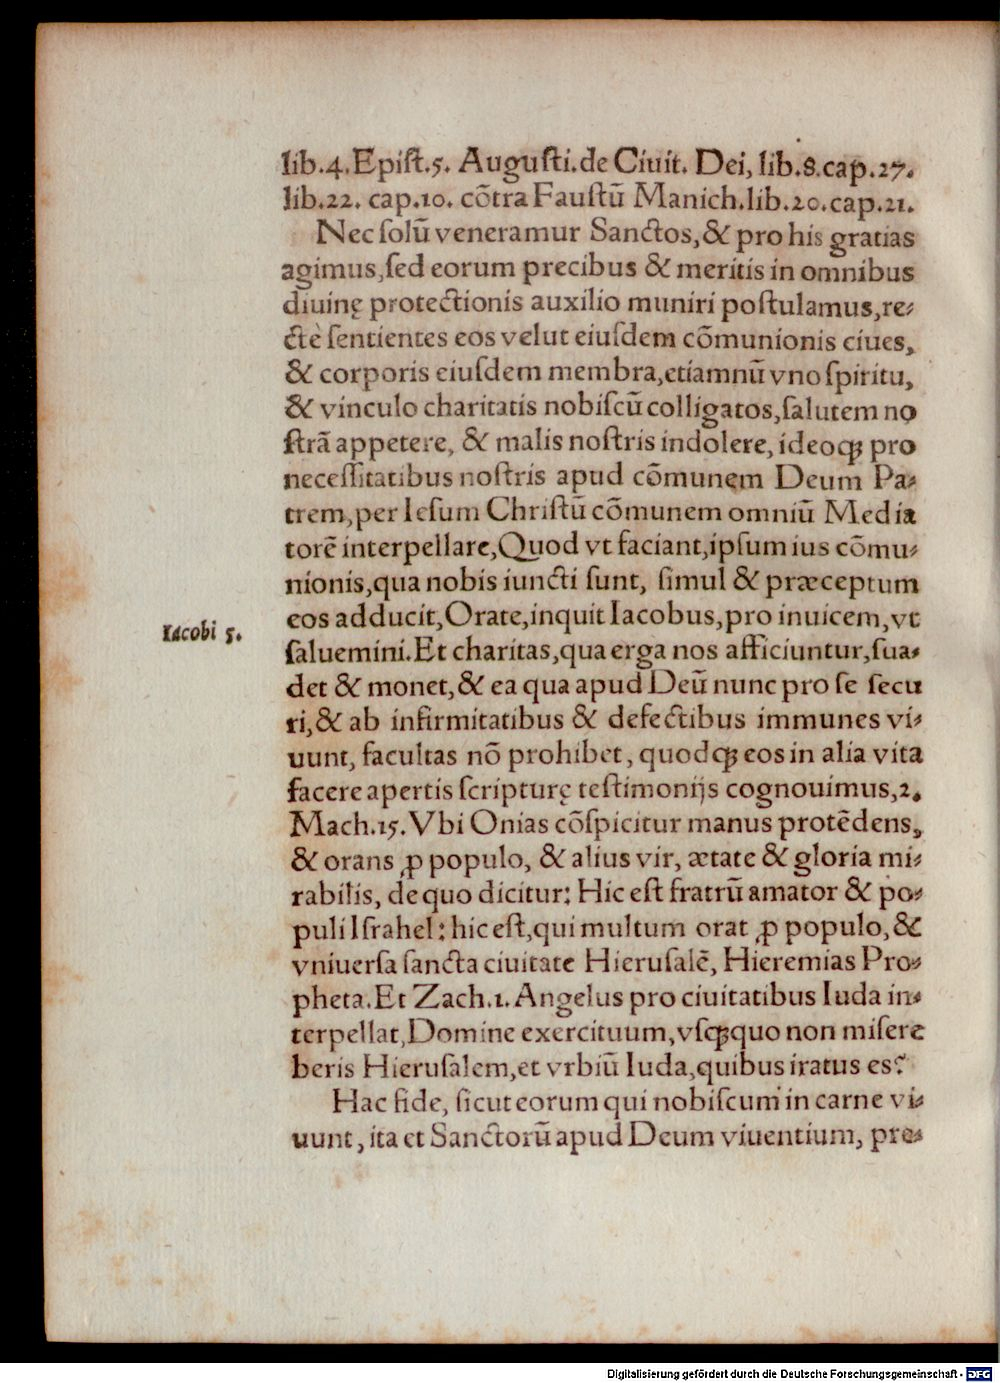 lib.4.Epiſt.5. Auguſti.de Ciuit. Dei, lib.8.cap.27.
lib.22. cap.10. cõtra Fauſtũ Manich.lib.20.cap.21.
Nec ſolũ veneramur Sanctos,& pro his gratias
agimus,ſed eorum precibus & meritis in omnibus
diuinę protectionis auxilio muniri poſtulamus,re⸗
ctè ſentientes eos velut eiuſdem cõmunionis ciues,
& corporis eiuſdem membra,etiamnũ vno ſpiritu,
& vinculo charitatis nobiſcũ colligatos,ſalutem no
ſtrã appetere, & malis noſtris indolere, ideoqꝫ pro
neceſſitatibus noſtris apud cõmunem Deum Pa⸗
trem,per Ieſum Chriſtũ cõmunem omniũ Media
torẽ interpellare,Quod vt faciant,ipſum ius cõmu⸗
nionis,qua nobis iuncti ſunt, ſimul & præceptum
eos adducit,Orate,inquit Iacobus,pro inuicem,vt
Iacobi 5.
ſaluemini.Et charitas,qua erga nos afficiuntur,ſua⸗
det & monet,& ea qua apud Deũ nunc pro ſe ſecu
ri,& ab infirmitatibus & defectibus immunes vi⸗
uunt, facultas nõ prohibet, quodqꝫ eos in alia vita
facere apertis ſcripturę teſtimonijs cognouimus,2.
Mach.15.Vbi Onias cõſpicitur manus protẽdens,
& orans ꝓ populo, & alius vir, ætate & gloria mi⸗
rabilis, de quo dicitur: Hic eſt fratrũ amator & po⸗
puli Iſrahel: hic eſt,qui multum orat ꝓ populo,&
vniuerſa ſancta ciuitate Hieruſalẽ, Hieremias Pro⸗
pheta.Et Zach.1.Angelus pro ciuitatibus Iuda in⸗
terpellat,Domine exercituum,vſqꝫquo non miſere
beris Hieruſalem,et vrbiũ Iuda,quibus iratus es?
Hac fide, ſicut eorum qui nobiſcum in carne vi⸗
uunt, ita et Sanctorũ apud Deum viuentium, pre⸗
Digitalisierung gefördert durch die Deutsche Forschungsgemeinschaft - DFG